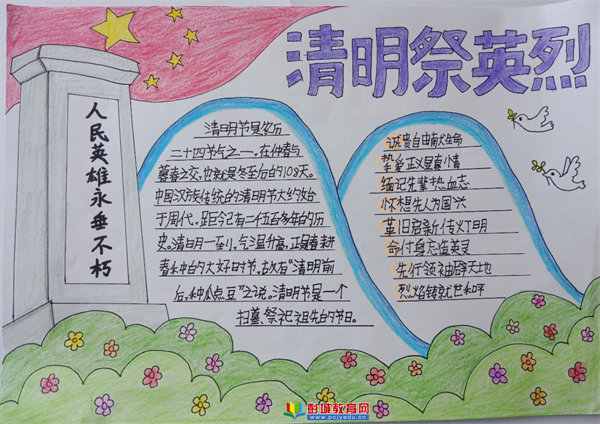 清明祭英烈
人民英雄永垂不朽
清明节是农历
二十四节气之一，在仲春与
暮春之交，也就是冬至后的108天。
中国汉族传统的清明节大约始
于周代，距今已有二千五百多年的历
史。清明一到，气温升高，正是春耕
春种的大好时节，故有“清明前
后，种瓜点豆”之说。清明节是一个
扫墓、祭祀祖先的节日。
诚贵自由献生命
挚爱正义显真情
缅记先辈热血志
怀想先人为国兴
革旧启新传灯明
命付身忘造英灵
先行领袖辟天地
烈焰铸就世和
彭城教育网